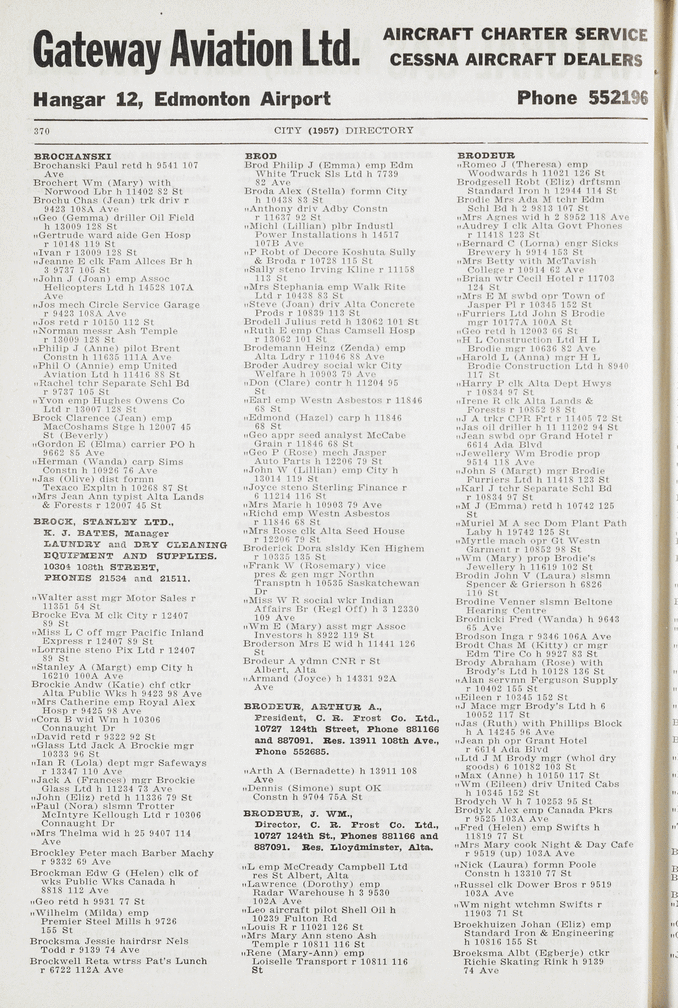 Gateway Aviation Ltd.
AIRCRAFT CHARTER SERVICE
CESSNA AIRCRAFT DEALERS
Hangar 12, Edmonton Airport
Phone 552196
370
CITY (1957) DIRECTORY
BROCHANSKI
Brochanski Paul retd h 9541 107
Ave
Brochert Wm (Mary) with
Norwood Lbr h 11402 82 St
Brochu Chas (Jean) trk driv r
9423 108A Ave
„Geo (Gemma) driller Oil Field
h 13009 128 St
„Gertrude ward aide Gen Hosp
r 10148 119 St
„Ivan r 13009 128 St
„Jeanne E clk Fam Allces Br h
3 9737 105 St
„John J (Joan) emp Assoc
Helicopters Ltd h 14528 107A
Ave
„Jos mech Circle Service Garage
r 9423 108A Ave
„Jos retd r 10150 112 St
„Norman messr Ash Temple
r 13009 128 St
„Philip J (Anne) pilot Brent
Constn h 11635 111A Ave
„Phil O (Annie) emp United
Aviation Ltd h 11416 88 St
„Rachel tchr Separate Schl Bd
r 9737 105 St
„Yvon emp Hughes Owens Co
Ltd r 13007 128 St
Brock Clarence (Jean) emp
MacCoshams Stge h 12007 45
St (Beverly)
„Gordon E (Elma) carrier PO h
9662 85 Ave
„Herman (Wanda) carp Sims
Constn h 10926 76 Ave
„Jas (Olive) dist formn
Texaco Expltn h 10268 87 St
„Mrs Jean Ann typist Alta Lands
& Forests r 12007 45 St
BROCK, STANLEY LTD.,
K. J. BATES, Manager
LAUNDRY and DRY CLEANING
EQUIPMENT AND SUPPLIES.
10304 108th STREET,
PHONES 21534 and 21511.
„Walter asst mgr Motor Sales r
11351 54 St
Brocke Eva M clk City r 12407
89 St
„Miss L C off mgr Pacific Inland
Express r 12407 89 St
„Lorraine steno Pix Ltd r 12407
89 St
„Stanley A (Margt) emp City h
16210 100A Ave
Brockie Andw (Katie) chf ctkr
Alta Public Wks h 9423 98 Ave
„Mrs Catherine emp Royal Alex
Hosp r 9425 98 Ave
„Cora B wid Wm h 10306
Connaught Dr
„David retd r 9322 92 St
„Glass Ltd Jack A Brockie mgr
10333 96 St
„Ian R (Lola) dept mgr Safeways
r 13347 110 Ave
„Jack A (Frances) mgr Brockie
Glass Ltd h 11234 73 Ave
„John (Eliz) retd h 11336 79 St
„Paul (Nora) slsmn Trotter
McIntyre Kellough Ltd r 10306
Connaught Dr
„Mrs Thelma wid h 25 9407 114
Ave
Brockley Peter mach Barber Machy
r 9332 69 Ave
Brockman Edw G (Helen) clk of
wks Public Wks Canada h
8818 112 Ave
„Geo retd h 9931 77 St
„Wilhelm (Milda) emp
Premier Steel Mills h 9726
155 St
Brocksma Jessie hairdrsr Nels
Todd r 9139 74 Ave
Brockwell Reta wtrss Pat's Lunch
r 6722 112A Ave
BROD
Brod Philip J (Emma) emp Edm
White Truck Sls Ltd h 7739
82 Ave
Broda Alex (Stella) formn City
h 10438 83 St
„Anthony driv Adby Constn
r 11637 92 St
„Michl (Lillian) plbr Industl
Power Installations h 14517
107B Ave
„P Robt of Decore Koshuta Sully
& Broda r 10728 115 St
„Sally steno Irving Kline r 11158
113 St
„Mrs Stephania emp Walk Rite
Ltd r 10438 83 St
„Steve (Joan) driv Alta Concrete
Prods r 10839 113 St
Brodell Julius retd h 13062 101 St
„Ruth E emp Chas Camsell Hosp
r 13062 101 St
Brodemann Heinz (Zenda) emp
Alta Ldry r 11046 88 Ave
Broder Audrey social wkr City
Welfare h 10903 79 Ave
„Don (Clare) contr h 11204 95
St
„Earl emp Westn Asbestos r 11846
68 St
„Edmond (Hazel) carp h 11846
68 St
„Geo appr seed analyst McCabe
Grain r 11846 68 St
„Geo P (Rose) mech Jasper
Auto Parts h 12206 79 St
„John W (Lillian) emp City h
13014 119 St
„Joyce steno Sterling Finance r
6 11214 116 St
„Mrs Marie h 10903 79 Ave
„Richd emp Westn Asbestos
r 11846 68 St
„Mrs Rose clk Alta Seed House
r 12206 79 St
Broderick Dora slsldy Ken Highem
r 10335 135 St
„Frank W (Rosemary) vice
pres & gen mgr Northn
Transptn h 10535 Saskatchewan
Dr
„Miss W R social wkr Indian
Affairs Br (Regl Off) h 3 12330
109 Ave
„Wm E (Mary) asst mgr Assoc
Investors h 8922 119 St
Broderson Mrs E wid h 11441 126
St
Brodeur A ydmn CNR r St
Albert, Alta
„Armand (Joyce) h 14331 92A
Ave
BRODEUR, ARTHUR A.,
President, C. R. Frost Co. Ltd.,
10727 124th Street, Phone 881166
and 887091. Res. 13911 108th Ave.,
Phone 552685.
„Arth A (Bernadette) h 13911 108
Ave
„Dennis (Simone) supt OK
Constn h 9704 75A St
BRODEUR, J. WM.,
Director, C. R. Frost Co. Ltd.,
10727 124th St., Phones 881166 and
887091. Res. Lloydminster, Alta.
„L emp McCready Campbell Ltd
res St Albert, Alta
„Lawrence (Dorothy) emp
Radar Warehouse h 3 9530
102A Ave
„Leo aircraft pilot Shell Oil h
10239 Fulton Rd
„Louis R r 11021 126 St
„Mrs Mary Ann steno Ash
Temple r 10811 116 St
„Rene (Mary-Ann) emp
Loiselle Transport r 10811 116
St
BRODEUR
„Romeo J (Theresa) emp
Woodwards h 11021 126 St
Brodgesell Robt (Eliz) drftsmn
Standard Iron h 12944 114 St
Brodie Mrs Ada M tchr Edm
Schl Bd h 2 9813 107 St
„Mrs Agnes wid h 2 8952 118 Ave
„Audrey I clk Alta Govt Phones
r 11418 123 St
„Bernard C (Lorna) engr Sicks
Brewery h 9914 153 St
„Mrs Betty with McTavish
College r 10914 62 Ave
„Brian wtr Cecil Hotel r 11703
124 St
„Mrs E M swbd opr Town of
Jasper Pl r 10345 152 St
„Furriers Ltd John S Brodie
mgr 10177A 100A St
„Geo retd h 12003 66 St
„H L Construction Ltd H L
Brodie mgr 10636 82 Ave
„Harold L (Anna) mgr H L
Brodie Construction Ltd h 8940
117 St
„Harry P clk Alta Dept Hwys
r 10834 97 St
„Irene R clk Alta Lands &
Forests r 10852 98 St
„J A trkr CPR Frt r 11405 72 St
„Jas oil driller h 11 11202 94 St
„Jean swbd opr Grand Hotel r
6614 Ada Blvd
„Jewellery Wm Brodie prop
9514 118 Ave
„John S (Margt) mgr Brodie
Furriers Ltd h 11418 123 St
„Karl J tchr Separate Schl Bd
r 10834 97 St
„M J (Emma) retd h 10742 125
St
„Muriel M A sec Dom Plant Path
Laby h 19742 125 St
„Myrtle mach opr Gt Westn
Garment r 10852 98 St
„Wm (Mary) prop Brodie's
Jewellery h 11619 102 St
Brodin John V (Laura) slsmn
Spencer & Grierson h 6826
110 St
Brodine Venner slsmn Beltone
Hearing Centre
Brodnicki Fred (Wanda) h 9643
65 Ave
Brodson Inga r 9346 106A Ave
Brodt Chas M (Kitty) cr mgr
Edm Tire Co h 9927 83 St
Brody Abraham (Rose) with
Brody's Ltd h 10128 136 St
„Alan servmn Ferguson Supply
r 10402 155 St
„Eileen r 10345 152 St
„J Mace mgr Brody's Ltd h 6
10052 117 St
„Jas (Ruth) with Phillips Block
h A 14245 96 Ave
„Jean ph opr Grant Hotel
r 6614 Ada Blvd
„Ltd J M Brody mgr (whol dry
goods) 6 10182 103 St
„Max (Anne) h 10150 117 St
„Wm (Eileen) driv United Cabs
h 10345 152 St
Brodych W h 7 10253 95 St
Brodyk Alex emp Canada Pkrs
r 9525 103A Ave
„Fred (Helen) emp Swifts h
11819 77 St
„Mrs Mary cook Night & Day Cafe
r 9519 (up) 103A Ave
„Nick (Laura) formn Poole
Constn h 13310 77 St
„Russel clk Dower Bros r 9519
103A Ave
„Wm night wtchmn Swifts r
11903 71 St
Broekhuizen Johan (Eliz) emp
Standard Iron & Engineering
h 10816 155 St
Broeksma Albt (Egberje) ctkr
Richie Skating Rink h 9139
74 Ave